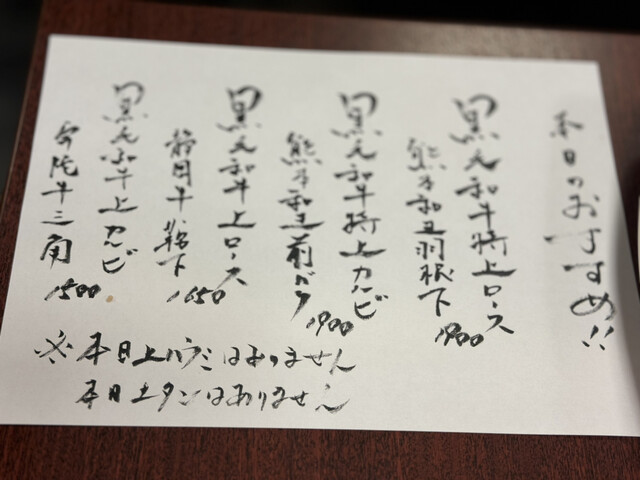 本日のおすすめ!!
黒毛和牛特上ロース
熊本和王羽根下
1900
黒毛和牛特上カルビ
熊本和王前バラ
1900
黒毛和牛上ロース
静岡牛鞍下
1650
黒毛和牛上カルビ
常陸牛三角
1500
※本日上ハラミはありません
本日上タンはありません